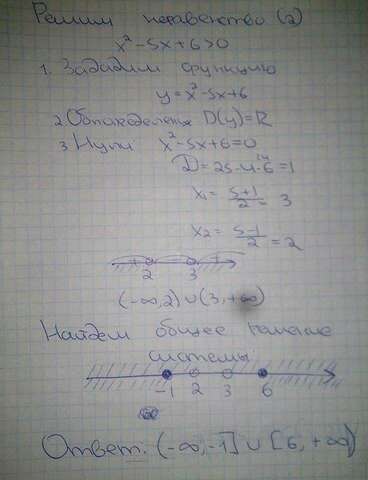 Решим неравенство (2)
x²-5x+6>0
1. Зададим функцию
y=x²-5x+6
2. Обл определения D(y)=R
3 Нули x²-5x+6=0
D=25-4·6=1
x₁= 5+1/2 = 3
x₂= 5-1/2 = 2
+ - +
2 3
(-∞,2)∪(3,+∞)
Найдем общее решение
системы
-1 2 3 6
Ответ: (-∞,-1]∪[6,+∞)